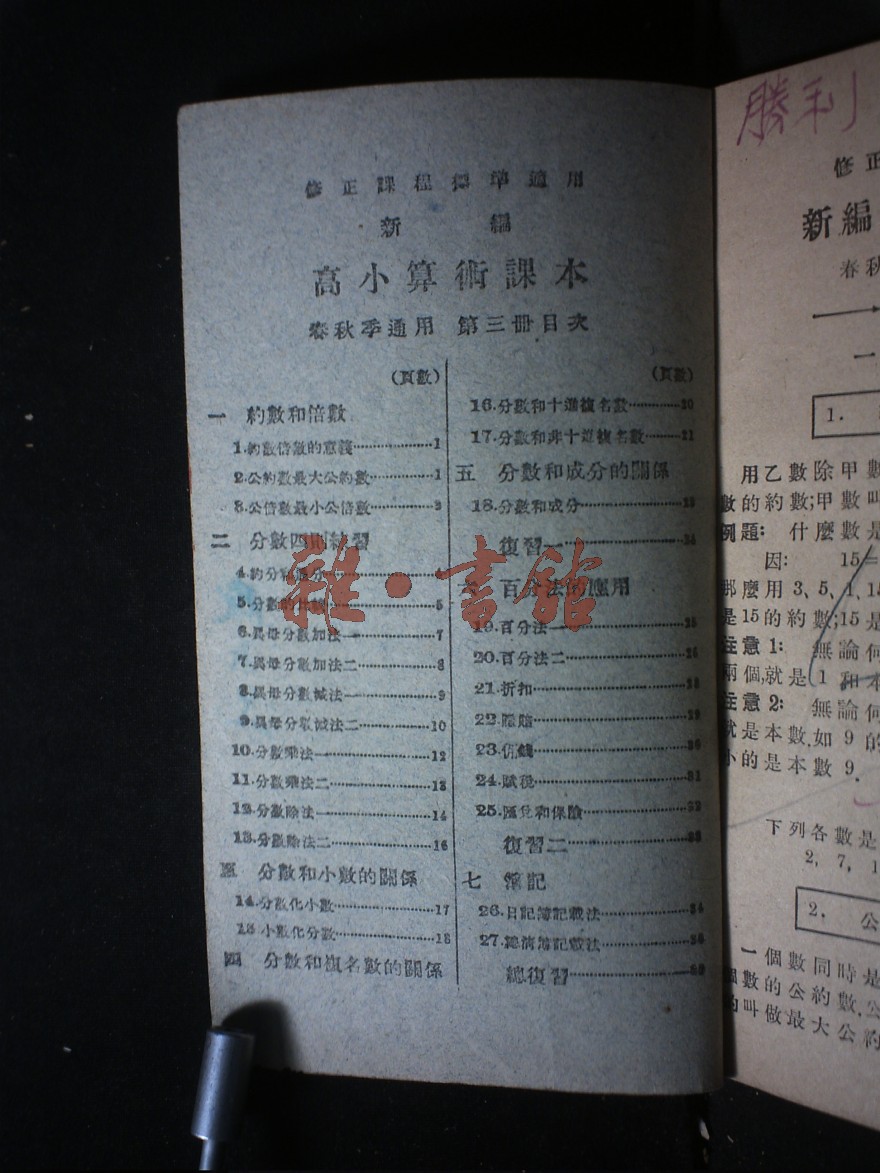 修正課程標準適用
新編
高小算術課本
春秋季通用 第三冊目次
(頁數)
一 約數和倍數
1.約數倍數的意義………1
2.公約數最大公約數………1
3.公倍數最小公倍數………
二 分數四則練習
4.約分和通分………
5.分數的比較………5
6.異母分數加法一………7
7.異母分數加法二………8
8.異母分數減法一………9
9.異母分數減法二………10
10.分數乘法一………12
11.分數乘法二………13
12.分數除法一………14
13.分數除法二………16
三 分數和小數的關係
14.分數化小數………17
15.小數化分數………18
四 分數和複名數的關係
(頁數)
16.分數和十進複名數………20
17.分數和非十進複名數………21
五 分數和成分的關係
18.分數和成分………
復習一………
六 百分法的應用
19.百分法一………
20.百分法二………
21.折扣………
22.賺賠………
23.佣錢………
24.賦稅………31
25.匯兌和保險………32
復習二………
七 簿記
26.日記簿記載法………
27.總清簿記載法………
總復習………
雜·書館
勝利
修正
新編
春秋
一
1.
用乙數除甲數
數的約數;甲數叫
例題: 什麼數是
因: 15=
那麼用 3、5、1、15
是15的約數;15是
注意1: 無論何
兩個,就是 1 和本
注意2: 無論何
就是本數,如 9 的
小的是本數 9.
下列各數是
2, 7, 1
2. 公
一個數同時是
個數的公約數.公
的叫做最大公約